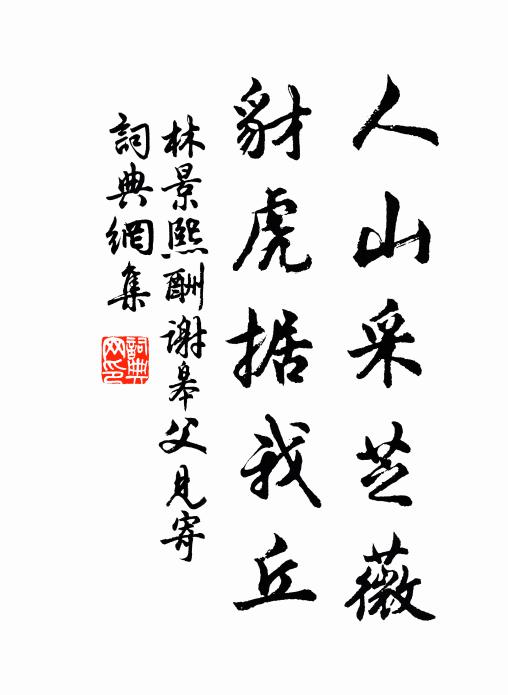 人山采芝薇
豺虎据我丘
林景熙酬谢皋父見寄
詞典網集
詞典
网印